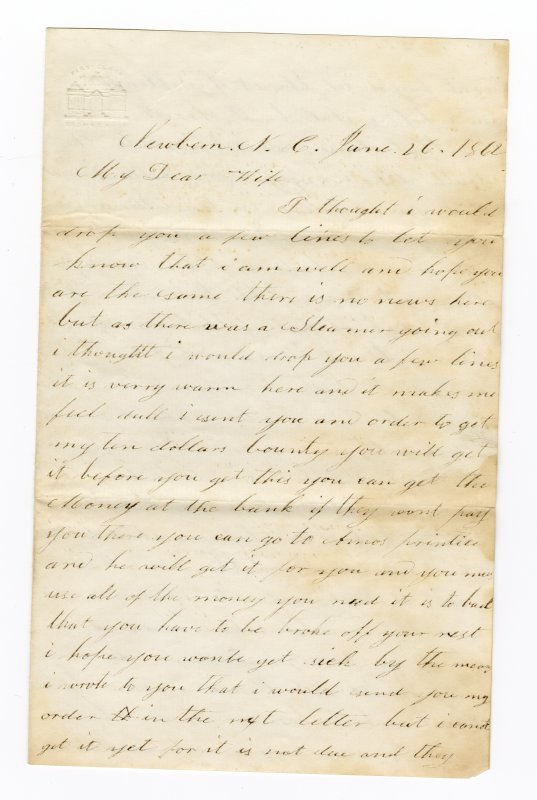 Newbern. N. C. June. 26. 1862
My Dear Wife
I thought i would
drop you a few lines to let you
know that i am well and hope you
are the same there is no news here
but as there was a Steamer going out
i thought i would drop you a few lines
it is verry warm here and it makes me
feel dull i sent you and order to get
my ten dollars bounty you will get
it before you get this you can get the
Money at the bank if they wont pay
you there you can go to Amos
and he will get it for you and you may
use all of the money you need it is to bad
that you have to be broke off your rest
i hope you wonte get sick by the means
i wrote to you that i would send you my
order in the next letter but i cannot
get it yet for it is not due and they